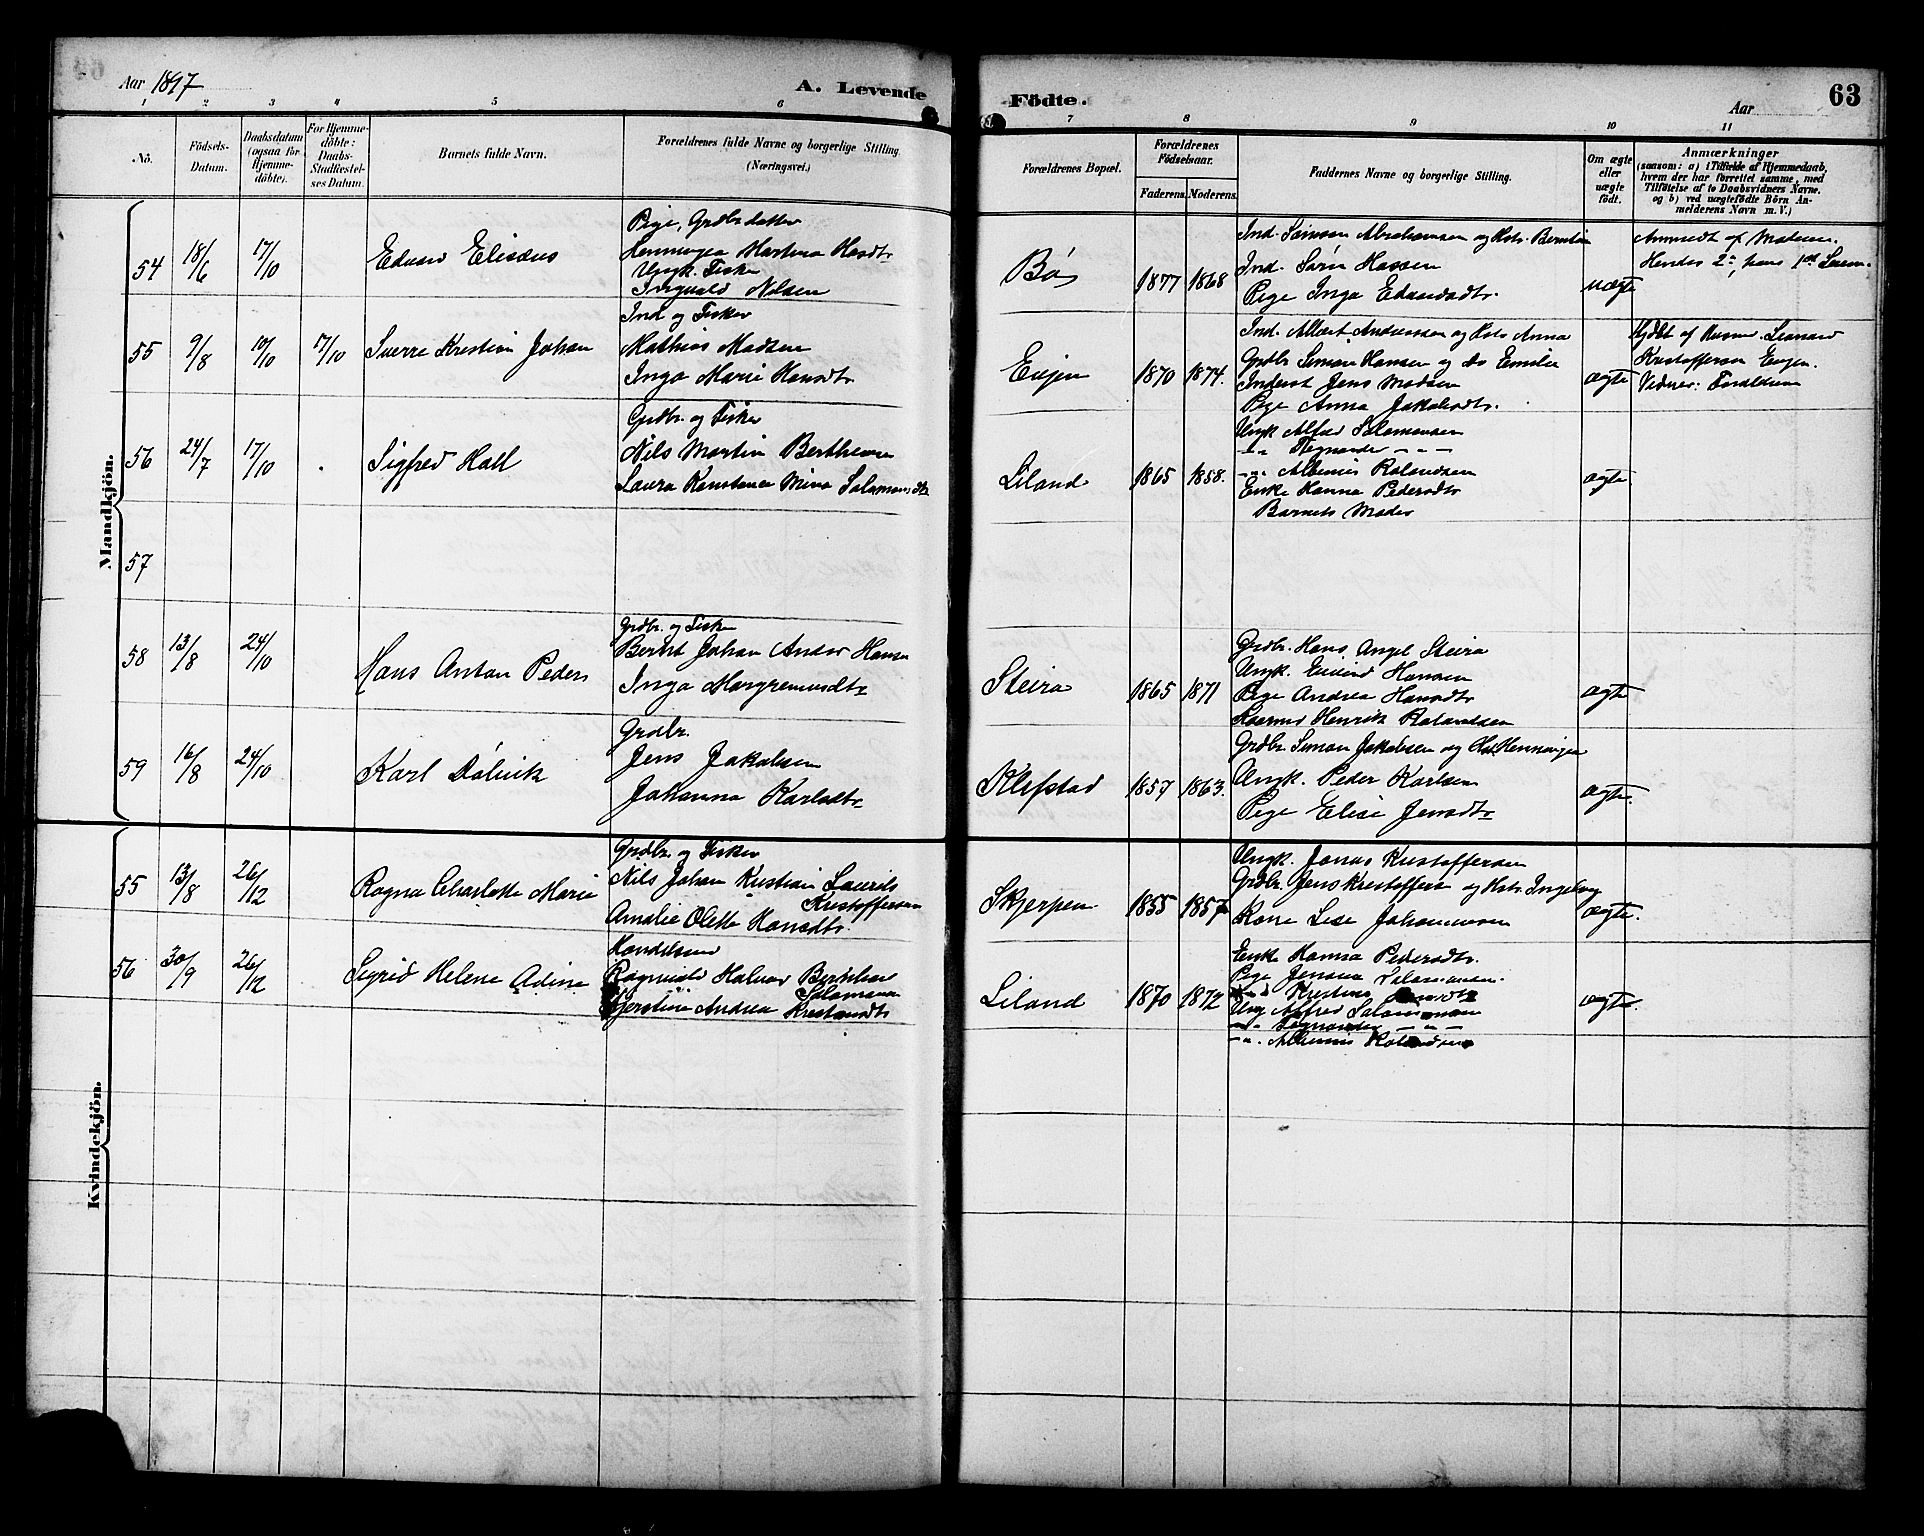 Aar 1897
A. Levende
Födte.
Aar
63
1 2 3 4 5 6 7 8 9 10 11
No.
Födsels-Datum.
Daabsdatum (ogsaa for Hjemmedöbte).
For Hjemmedöbte: Daabs-Stadfæstelses Datum.
Barnets fulde Navn.
Forældrenes fulde Navne og borgerlige Stilling.
(Næringsvei.)
Forældrenes Bopæl.
Forældrenes Födselsaar.
Faderens. Moderens.
Faddernes Navne og borgerlige Stilling.
Om ægte eller uægte födt.
Anmærkninger
(saasom: a) i Tilfælde af Hjemmedaab,
hvem der har forrettet samme, med
Tilföielse af to Daabsvidners Navne.
og b) ved uægtefödte Börn Anmelderens Navn m. V.)
Mandkjön.
54 18/6 17/10 Edvard Elisæus
Pige, Grdbr.datter
Henningea Martina Hansdtr
Ungk. Fisker
Ingvald Nilsen
Bø 1877 1868
Ind. Abrahamsen og Hstr.
Ind. Sørn Hansen
Pige Inga Edvardsdtr.
uægte
Anmeldt af Moderen.
Hendes 2det, hans 1ste
55 9/8 10/10 17/10 Sverre Kristian Johan
Ind og Fisker
Mathias Madsen
Inga Marie Hansdtr
Evjen 1870 1874.
Ind. Albert Andreassen og Hstr Anna
Grdbr Simon Hansen og do Emilie
Inderst Jens Madsen
Pige Anna Jakobsdtr.
ægte
Hjdbt af Leonard
Kristoffersen Evjen.
Vidner: Forældrene
56 24/7 17/10 Sigfred Hall
Grdbr. og Fisker
Nils Martin Bertheusen
Laura Konstance Mina Salamonsdtr
Liland 1865 1858.
Ungk Alfred Salamonsen
-"- Regnander -"-
-"- Albinius Rolandsen
Enke Hanna Pedersdtr
Barnets Moder
ægte
57
58 13/8 24/10 Hans Anton Peder
Grdbr. og Fisker
Bernt Johan Andor Hansen
Inga Margremsdtr
Steira 1865 1871
Grdbr. Hans Angel Steira
Ungk. Eivind Hansen
Pige Andrea Hansdtr
Henrik Rolandsen
ægte
59 16/8 24/10 Karl Dölvik
Grdbr.
Jens Jakobsen
Johanna Karlsdtr
Klefstad 1857 1863.
Grdbr. Simon Jakobsen og Henningea
Ungk. Peder Karlsen
Pige Elise Jensdtr
ægte.
Kvindekjön.
55 13/8 26/12 Ragna Charlotte Marie
Grdbr. og Fisker
Nils Johan Kristian Laurits
Kristoffersen
Amalie Olette Hansdtr.
Skjerpen 1855 1857
Ungk. Jonas Kristoffersen
Grdbr. Jens Kristoffers og Hstr. Ingeborg
Kone Lise Johannesen
ægte.
56 30/9 26/12 Sigrid Helene Adine
Handelsm
Ragnvald Halvar Bernhar
Salamonsen
Kjerstine Andrea Kristansdtr
Liland 1870 1872
Enke Hanna Pedersdtr.
Pige Jensea Salamonsen.
Kristine
Ung Alfred Salamonsen
-"- Regnander -"-
-"- Albinius Rolandsen
ægte.